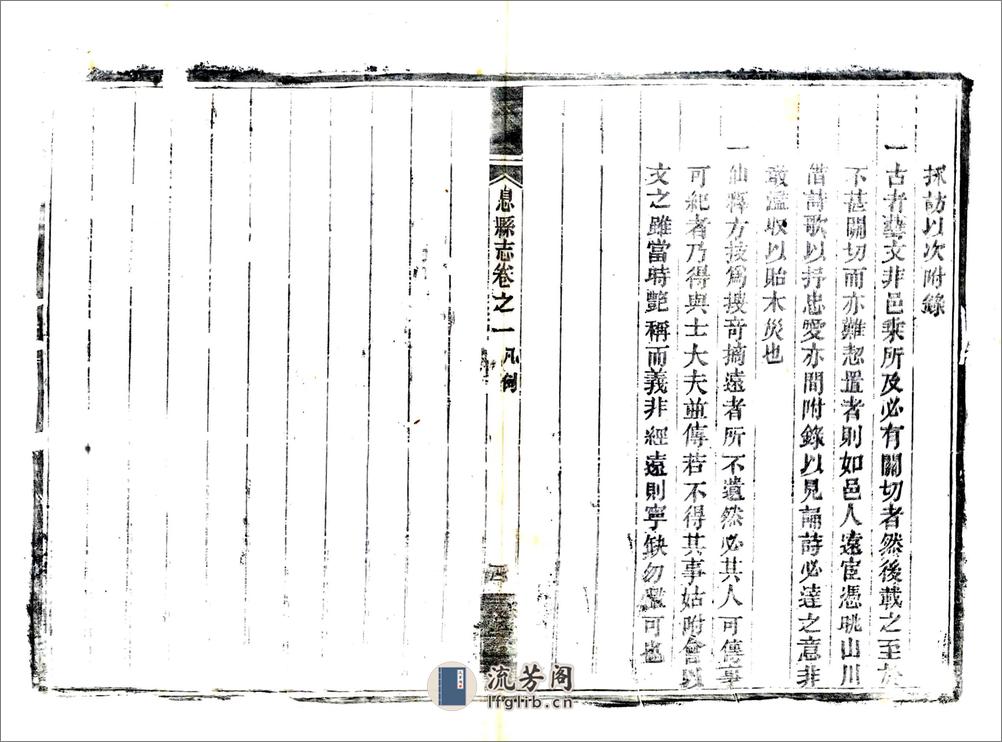 採訪以次附錄
一古者藝文非邑乘所及必有關切者然後載之至於
不甚關切而亦難恝置者則如邑人遠宦憑眺山川
借詩歌以抒忠愛亦間附錄以見誦詩必達之意非
敢濫收以貽木災也
一仙釋方技為搜奇摘遠者所不遺然必其人可傳事
可紀者乃得與士大夫並傳若不得其事姑附會以
文之雖當時艷稱而義非經遠則寧缺勿濫可也
息縣志卷之一 凡例
四
流芳阁
lfglib.cn